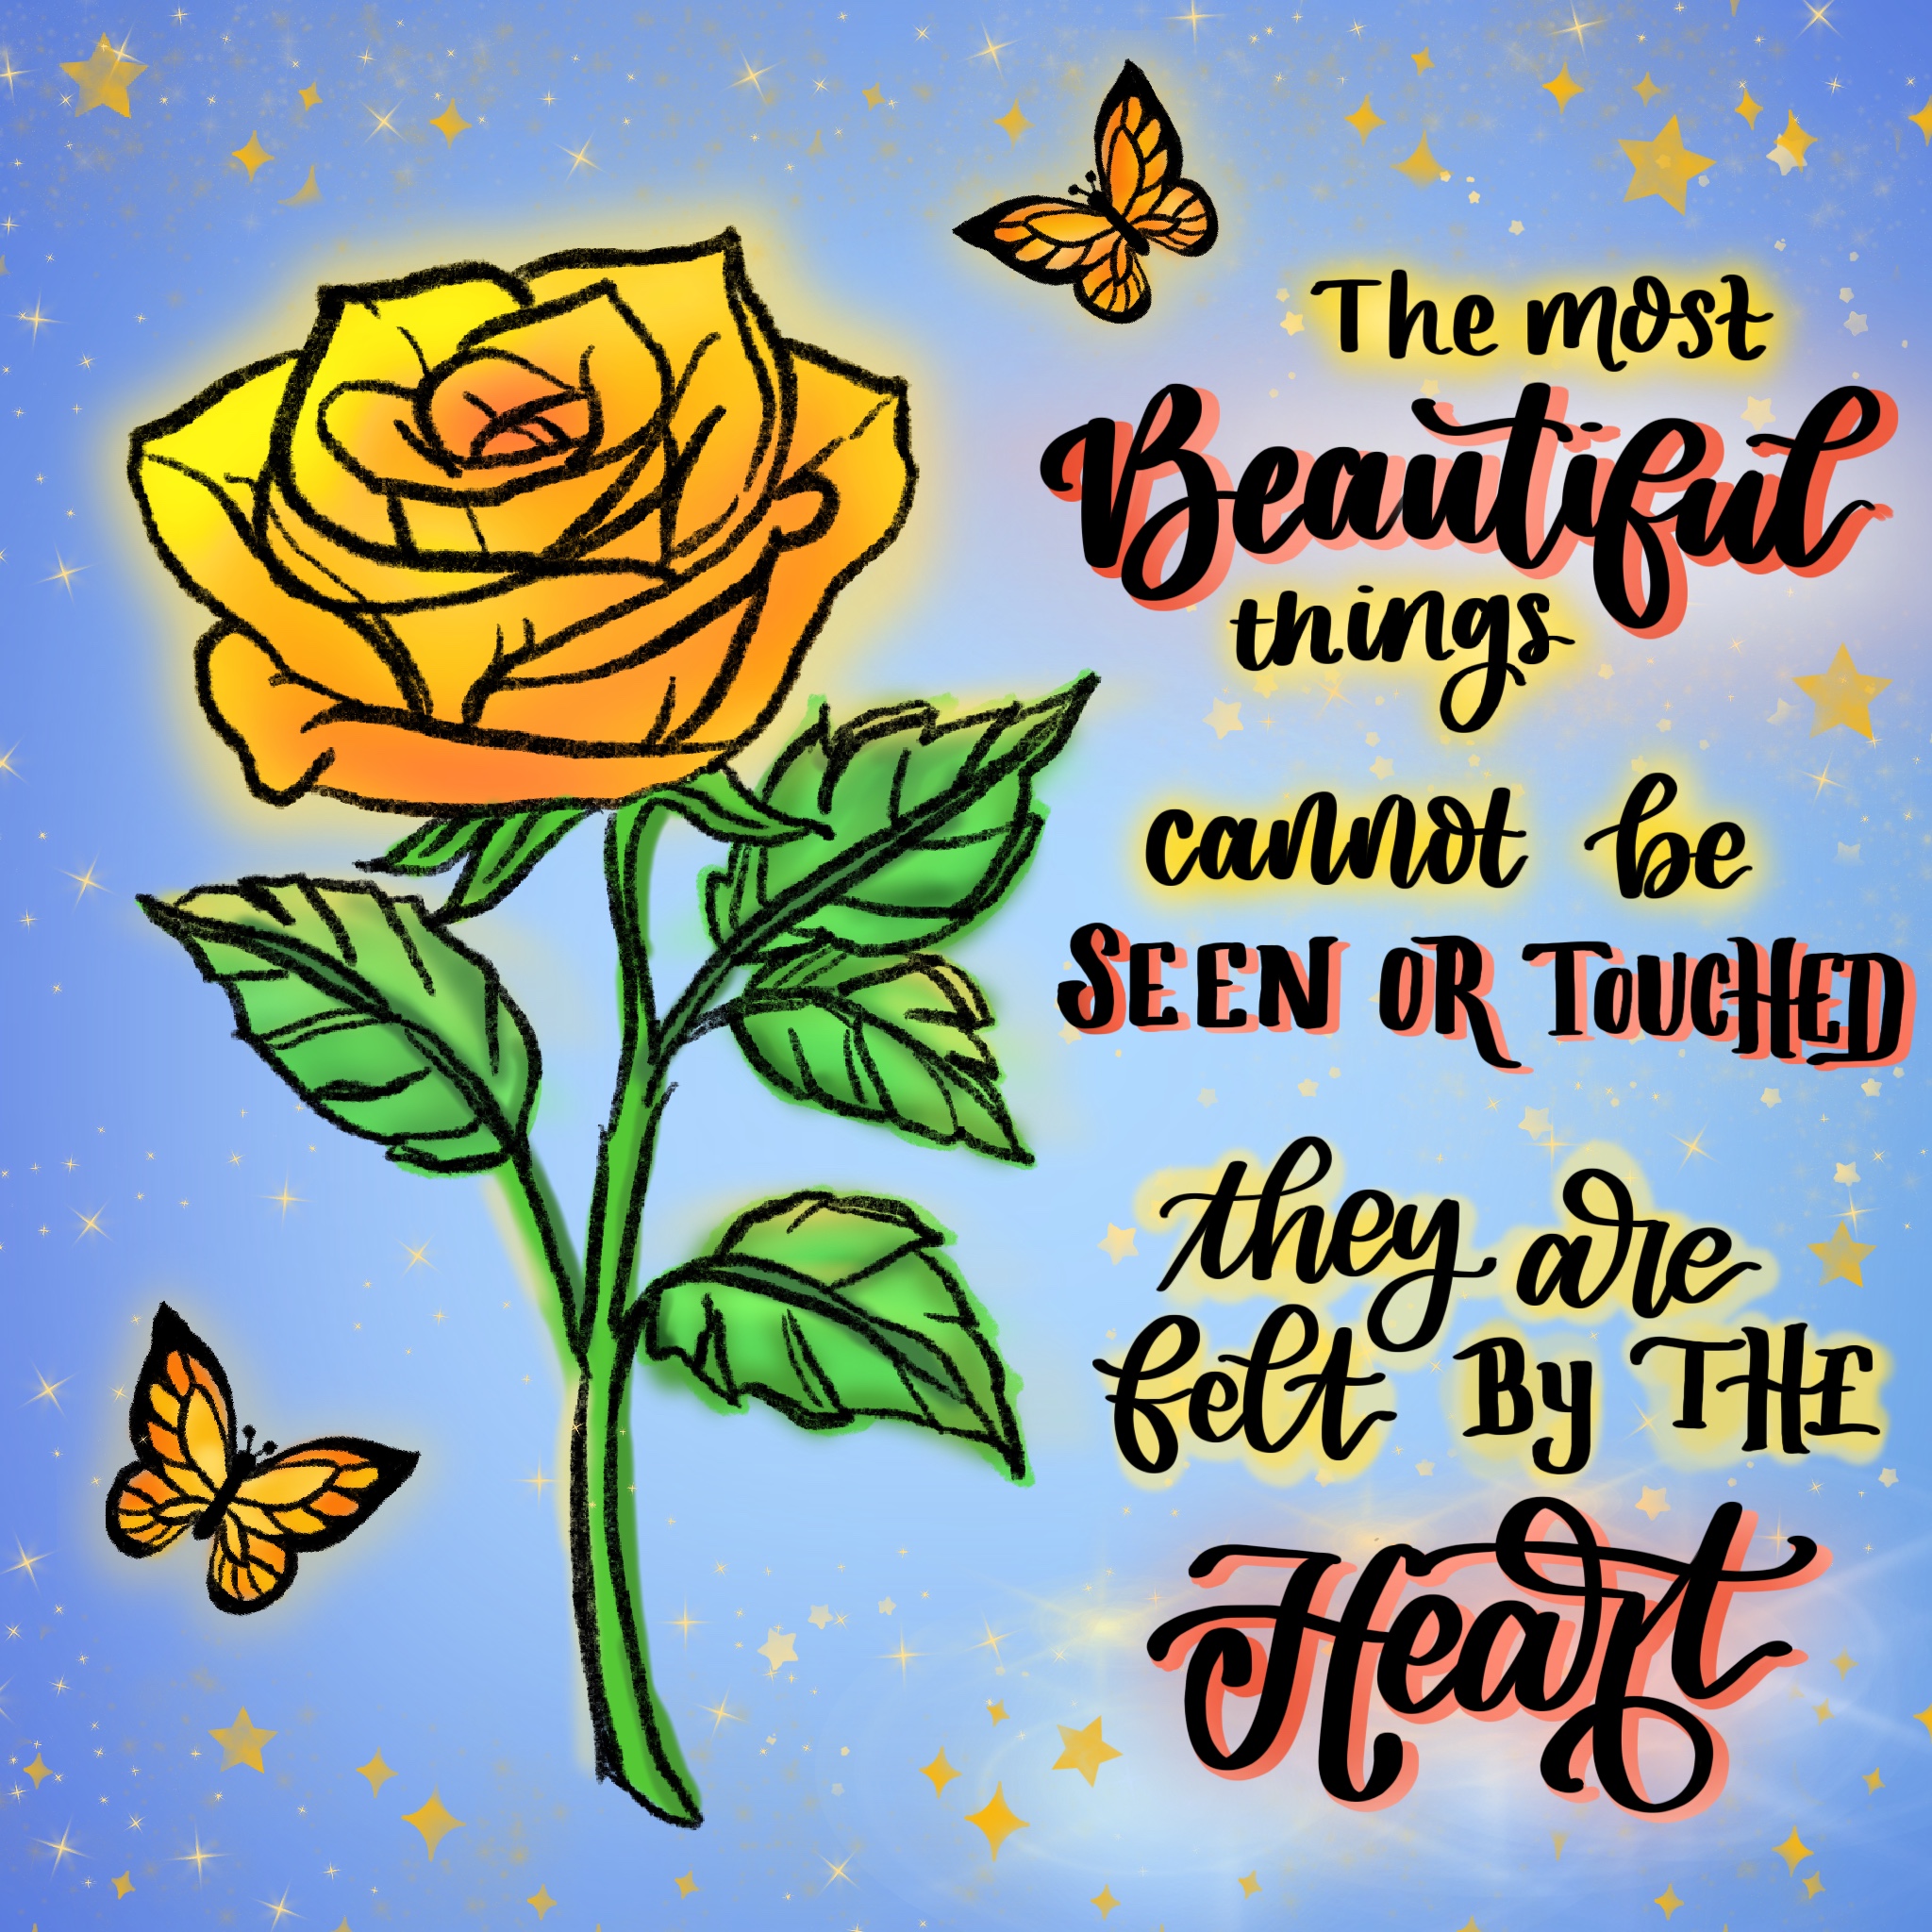 The most
Beautiful
things
cannot be
SEEN OR TOUCHED
they are
felt By THE
Heart